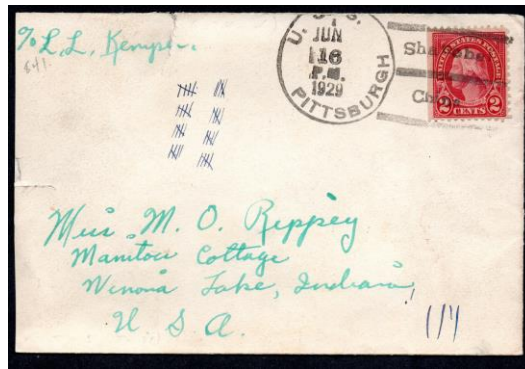 % L. L. Kemper
641.
U. S. S.
JUN
16
P.M.
1929
PITTSBURGH
Shanghai
China
UNITED STATES POSTAGE
2 CENTS 2
Miss M. O. Rippey
Manitou Cottage
Winona Lake, Indiana,
U S A.